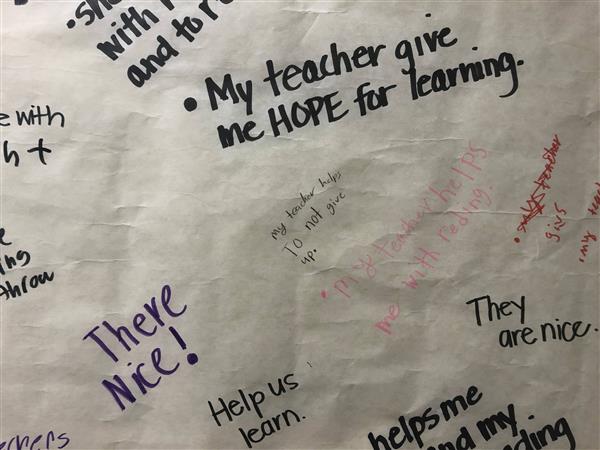 with
and to
• My teacher give
me HOPE for learning.
with
my teacher helps
To not give
up.
• my teacher helps
me with reding.
teacher
givs
my
throw
There
Nice!
They
are nice.
Help us
learn.
helps me
my